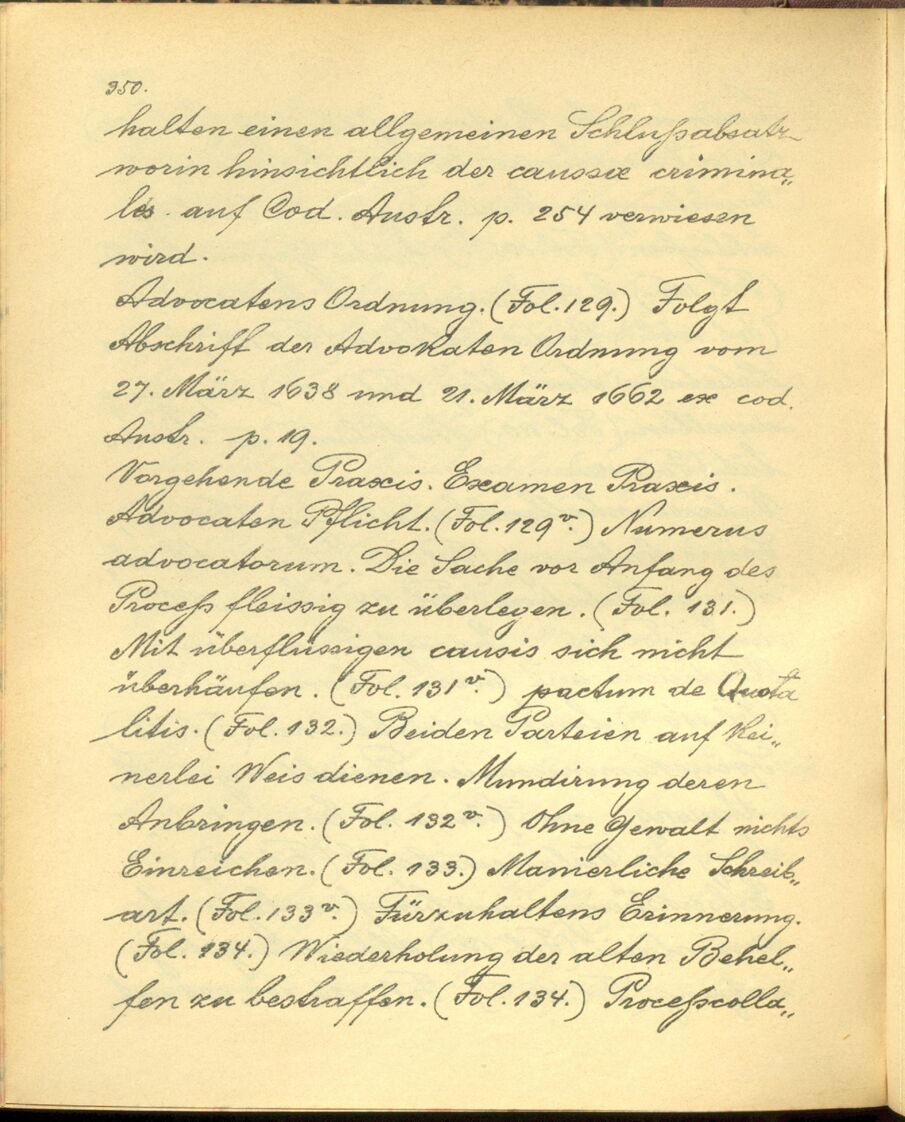 350.
halten einen allgemeinen Schlußabsatz
worin hinsichtlich der caussæ crimina„
les auf Cod. Austr. p. 254 verwiesen
wird.
Advocatens Ordnung. (Fol. 129.) Folgt
Abschrift der Advokaten Ordnung vom
27. März 1638 und 21. März 1662 ex cod.
Austr. p. 19.
Vorgehende Praxis. Examen Praxis.
Advocaten Pflicht. (Fol. 129v.) Numerus
advocatorum. Die Sache vor Anfang des
Proceß fleissig zu überlegen. (Fol. 131.)
Mit überflüssigen causis sich nicht
überhäufen. (Fol. 131v.) pactum de Quota
litis. (Fol. 132.) Beiden Parteien auf kei„
nerlei Weis dienen. Mundirung deren
Anbringen. (Fol. 132v.) Ohne Gewalt nichts
Einreichen. (Fol. 133.) Manierliche Schreib„
art. (Fol. 133v.) Fürzuhaltens Erinnerung.
(Fol. 134.) Wiederholung der alten Behel„
fen zu bestraffen. (Fol. 134.) Proceßcolla„